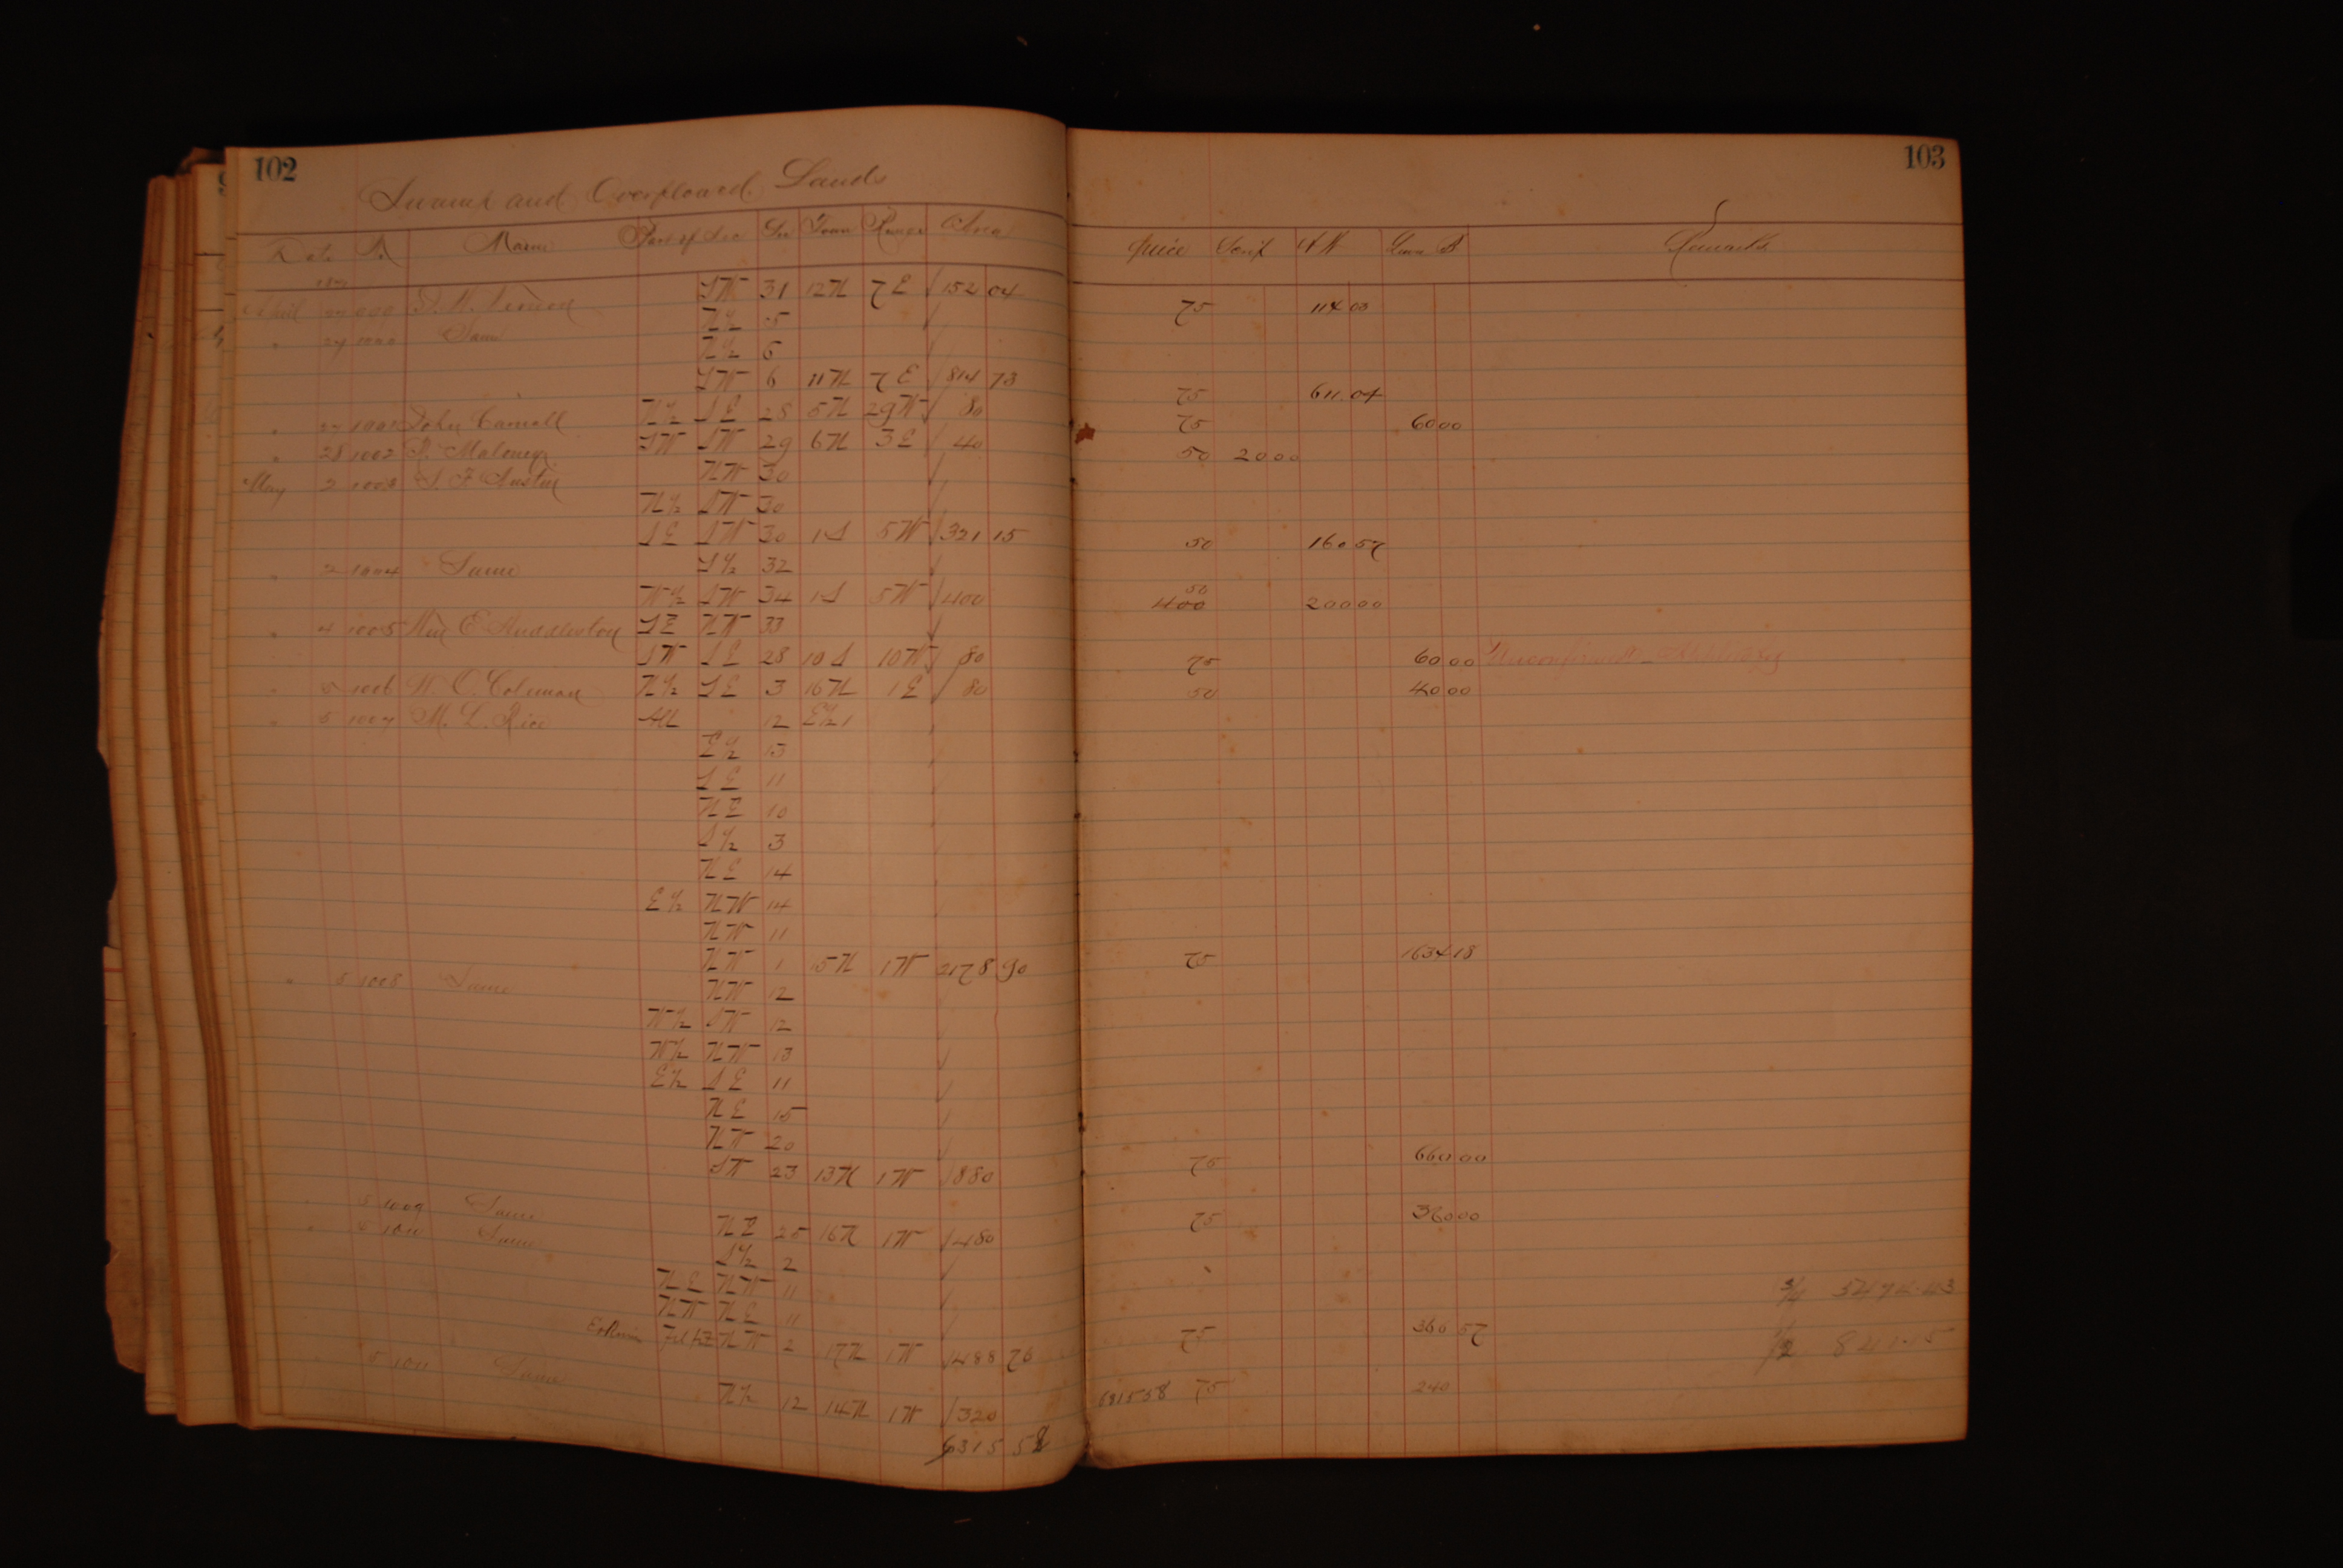 102
Swamp and Overfloard Lands
Date No Name Part of Sec Sec Town Range Area
April 27 999 SW 31 12N 7E 152 04
" 27 1000 Same N½ 5
N½ 6
SW 6 11N 7E 814 73
" 27 1001 John Carroll N½ SE 28 5N 29W 80
" 28 1002 P. Maloney SW SW 29 6N 3E 40
May 2 1003 S. F. Austin NW 30
N½ SW 30
SE SW 30 1S 5W 321 15
" 2 1004 Same S½ 32
W½ SW 34 1S 5W 400
" 4 1005 Wm E Huddleston SE NW 33
SW SE 28 10S 10W 80
" 5 1006 W. O. Coleman N½ SE 3 16N 1E 80
" 5 1007 M. L. Rice All 12 E½ 1
E½ 13
SE 11
NE 10
S½ 3
NE 14
E½ NW 14
NW 11
NW 1 15N 1W 2178 90
" 5 1008 Same NW 12
W½ SW 12
W½ NW 13
E½ SE 11
NE 15
NW 20
SW 23 13N 1W 880
5 1009 Same NE 25 16N 1W 480
5 1010 Same S½ 2
NE NW 11
NW NE 11
NW 2 17N 1W 488 76
5 1011 Same N½ 12 14N 1W 320
6315 58
103
Price Scrip Remarks
75 114 03
75 611.04
75 60 00
50 20 00
50 160 57
50
400 200 00
75 60 00 Unconfirmed
50 40 00
75 1634 18
75 660 00
75 360 00
75 360 57
631558 75 240
¾ 5474.43
½ 841.15